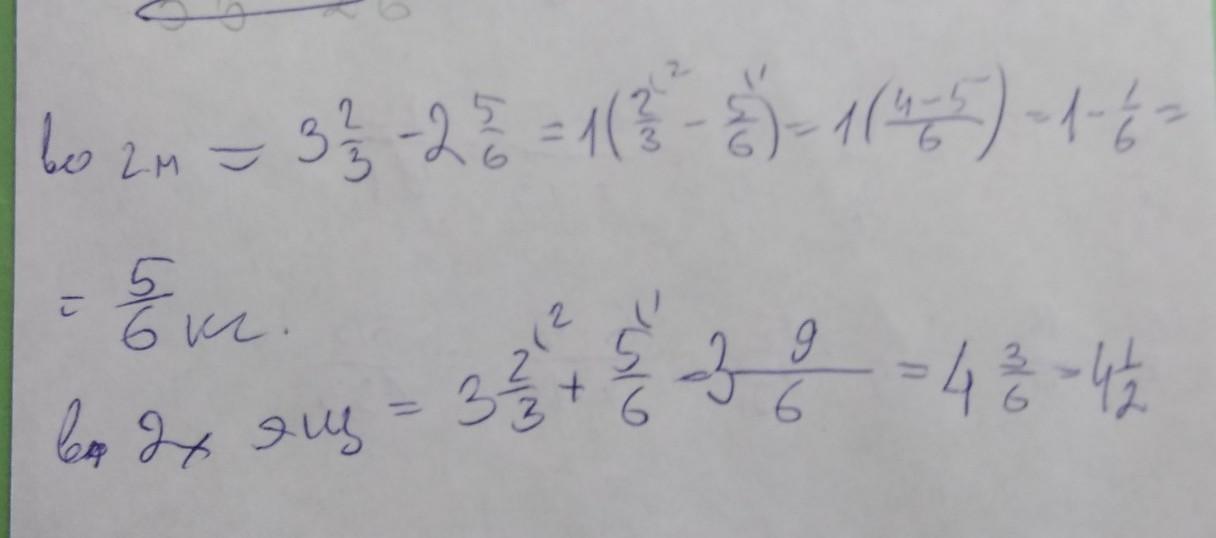 во 2м = 3 2/3 - 2 5/6 = 1(2/3 ² - 5/6 ¹) = 1(4-5/6) = 1 - 1/6 =
= 5/6 кг.
в 2х ящ = 3 2/3 ² + 5/6 ¹ = 3 9/6 = 4 3/6 = 4 1/2